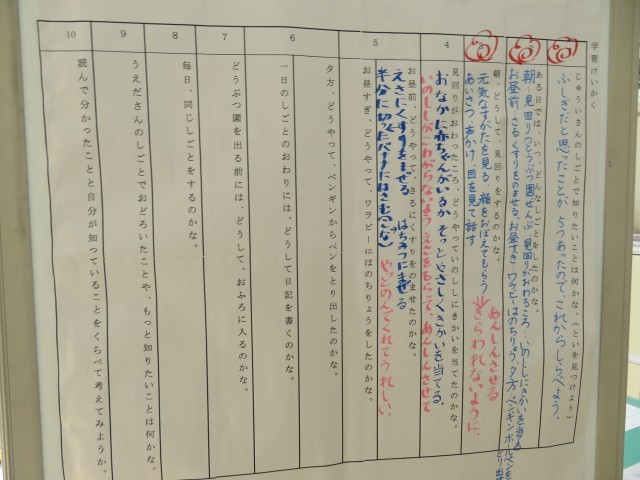 学習けいかく
じゅういさんのしごとで知りたいことは何かな。(といを見つけよう)
ふしぎだと思ったことが、5つあったので、これからしらべよう。
ある日では、いつ、どんなしごとをしたのかな。
朝…見回り(どうぶつ園ぜんぶ) 見回りがおわるころ…いのししにきかいを当てる
お昼前 さるくすりをのませる、お昼すぎ ワラビーはのちりょう 夕方、ペンギン ボールペンをとり出す
朝、どうして、見回りをするのかな。
元気なすがたを見る 顔をおぼえてもらう
あいさつ、声かけ、目を見て話す
あんしんさせる
きらわれないように。
4
見回りがおわったころ、どうやっていのししにきかいを当てたのかな。
おなかに赤ちゃんがいるか そっとやさしくきかいを当てる。
いのししがこわがらないよう えさをもらって、あんしんさせて
5
お昼前、どうやって、さるにくすりをのませたのかな。
えさにくすりをまぜる はちみつにまぜる
半分に切ったバナナにはさむ(こな)
やっとのんでくれてうれしい。
お昼すぎ、どうやって、ワラビーにはのちりょうをしたのかな。
6
夕方、どうやって、ペンギンからペンをとり出したのかな。
一日のしごとのおわりには、どうして日記を書くのかな。
7
どうぶつ園を出る前には、どうして、おふろに入るのかな。
8
毎日、同じしごとをするのかな。
9
うえださんのしごとでおどろいたことや、もっと知りたいことは何かな。
10
読んで分かったことと自分が知っていることをくらべて考えてみようか。